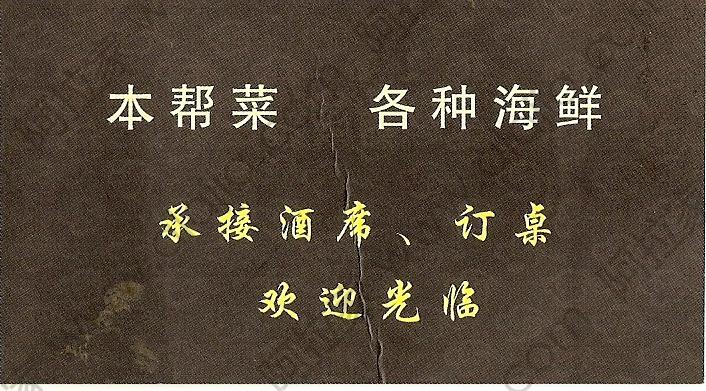 本帮菜 各种海鲜
承接酒席、订桌
欢迎光临